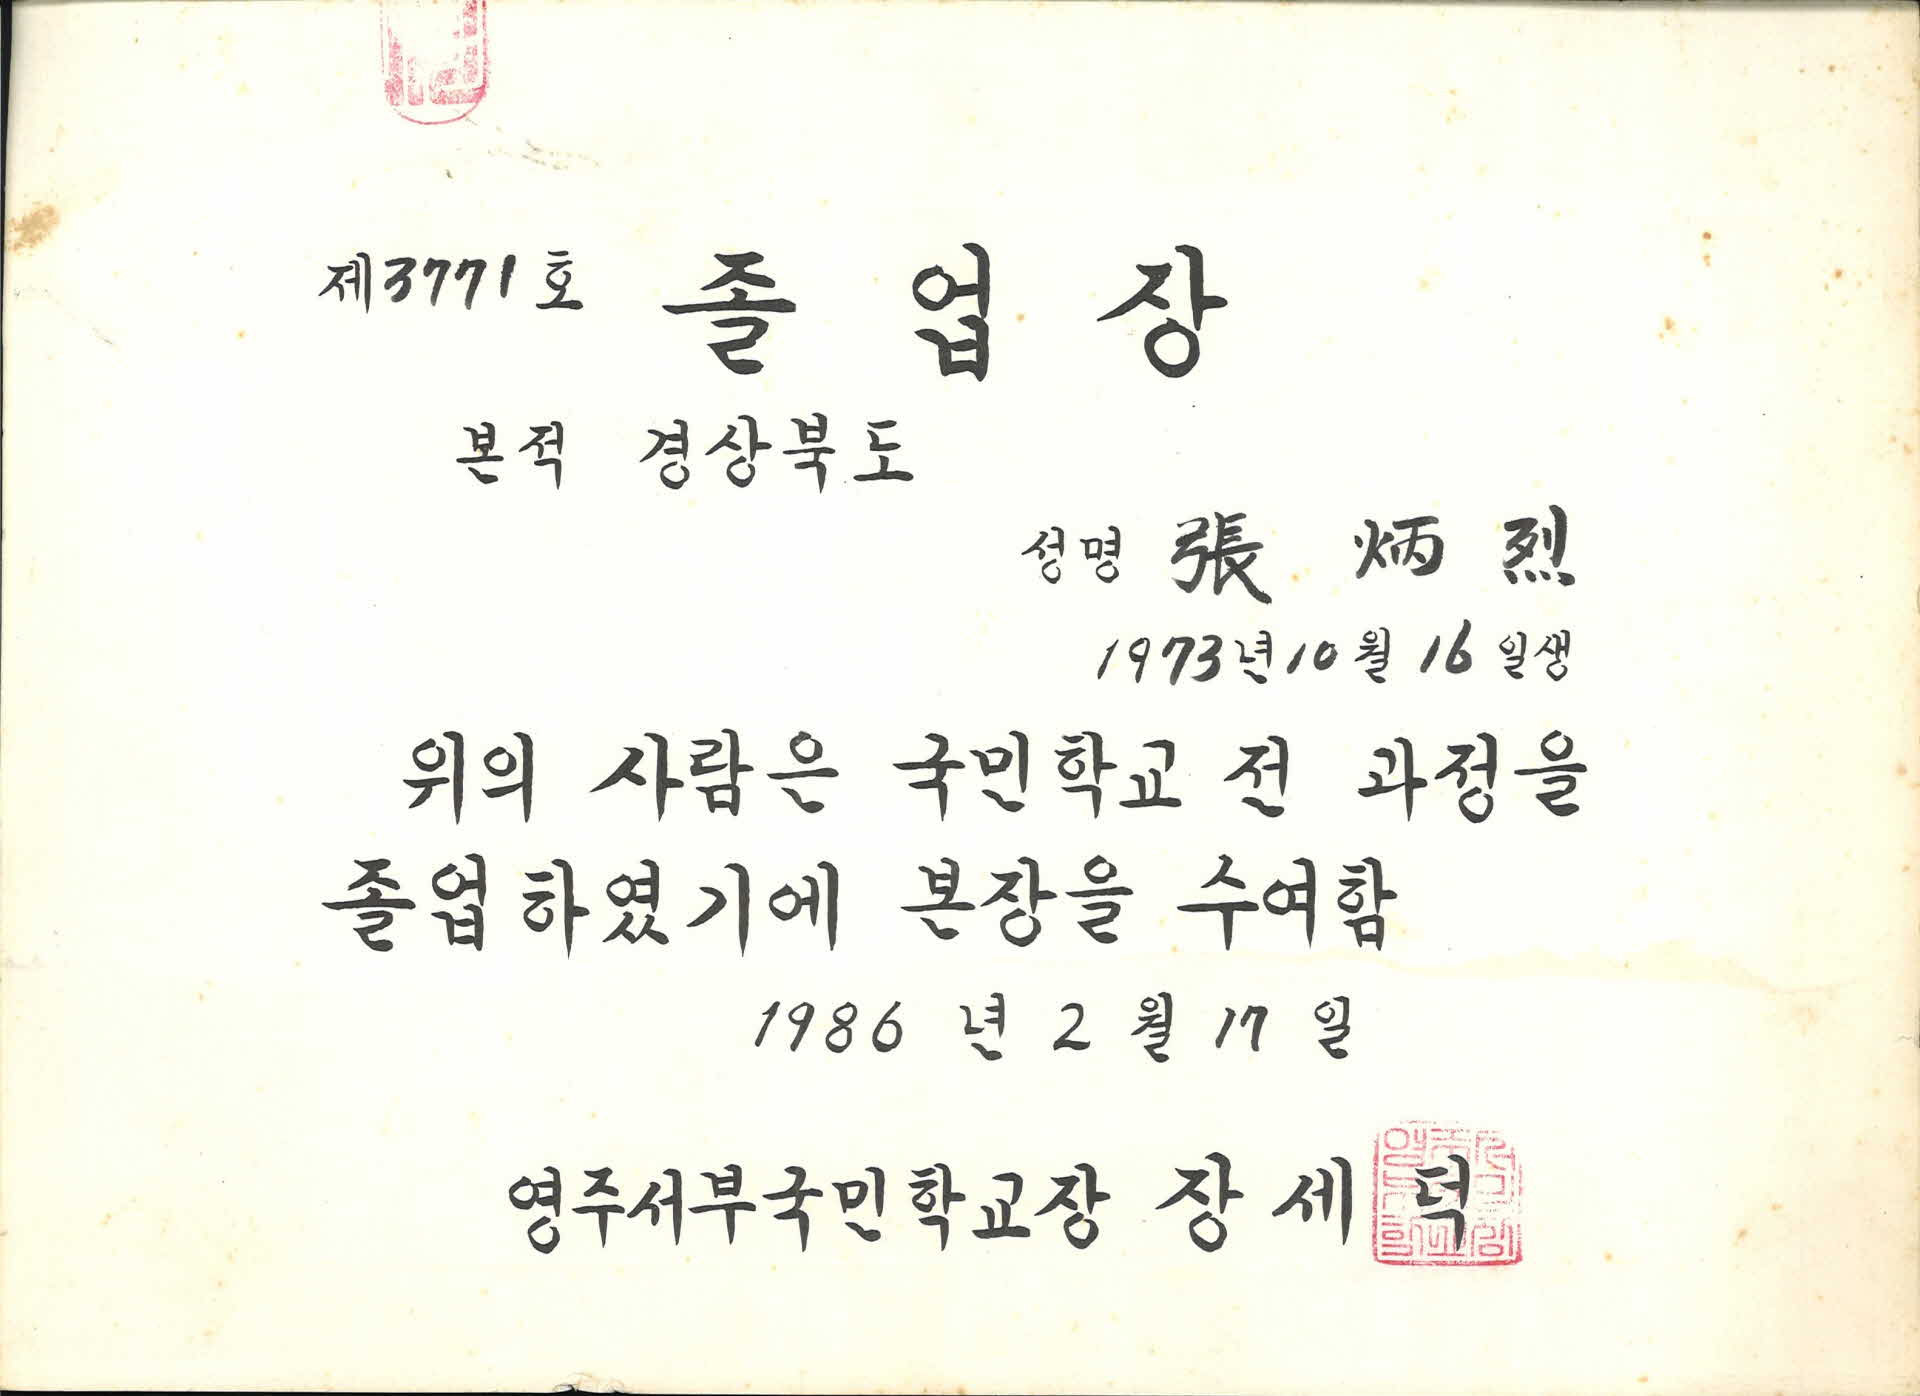 제3771호 졸업장
본적 경상북도
성명 張炳烈
1973년10월16일생
위의 사람은 국민학교 전 과정을
졸업하였기에 본장을 수여함
1986년 2월 17일
영주서부국민학교장 장세덕